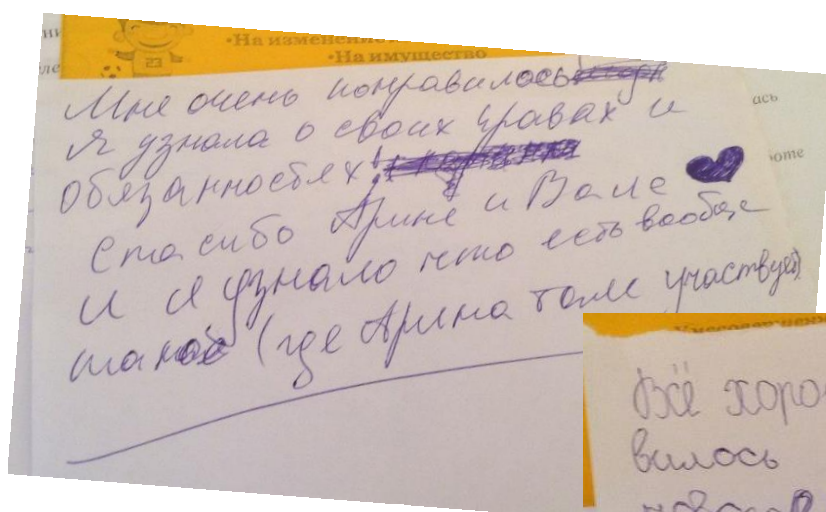 •На изменение
•На имущество
Мне очень понравилось
я узнала о своих правах и
обязанностях!
Спасибо Арине и Вале
и я узнало что есть вообще
такое (где Арина там участвует)
ась
боте
Всё хоро
вилось